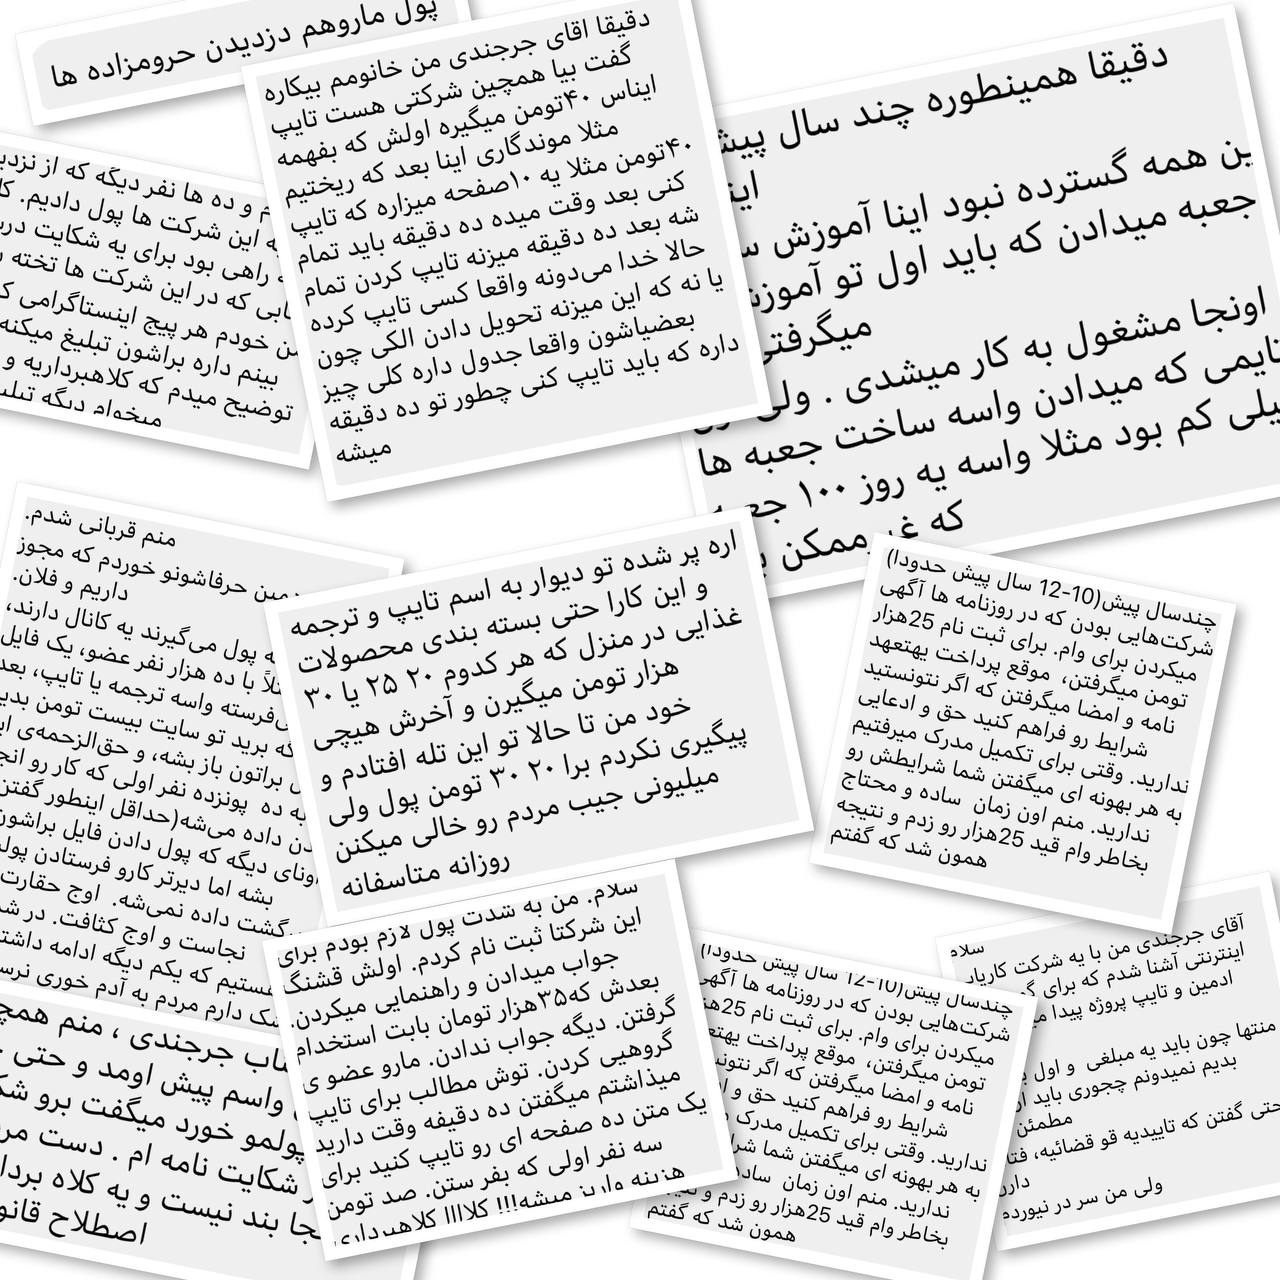 پول ماروهم دزدیدن حرومزاده ها
دقیقا اقای جرجندی من خانومم بیکاره
گفت بیا همچین شرکتی هست تایپ
ایناس ۴۰تومن میگیره اولش که بفهمه
مثلا موندگاری اینا بعد که ریختیم
۴۰تومن مثلا یه ۱۰صفحه میزاره که تایپ
کنی بعد وقت میده ده دقیقه باید تمام
شه بعد ده دقیقه میزنه تایپ کردن تمام
حالا خدا می‌دونه واقعا کسی تایپ کرده
یا نه که این میزنه تحویل دادن الکی چون
بعضیاشون واقعا جدول داره کلی چیز
داره که باید تایپ کنی چطور تو ده دقیقه
میشه
دقیقا همینطوره چند سال پیش
این همه گسترده نبود اینا آموزش
جعبه میدادن که باید اول تو آموزش
میگرفتی
اونجا مشغول به کار میشدی . ولی
تایمی که میدادن واسه ساخت جعبه ها
خیلی کم بود مثلا واسه یه روز ۱۰۰
که غیر ممکن
و ده ها نفر دیگه که از
این شرکت ها پول دادیم.
راهی بود برای یه شکایت
که در این شرکت ها تخته
خودم هر پیج اینستاگرامی
بینم داره براشون تبلیغ میکنه
توضیح میدم که کلاهبرداریه و
میخوام دیگه
منم قربانی شدم.
حرفاشونو خوردم که مجوز
داریم و فلان.
پول می‌گیرند یه کانال دارند،
با ده هزار نفر عضو، یک فایل
واسه ترجمه یا تایپ، بعد
برید تو سایت بیست تومن
براتون باز بشه، و حق‌الزحمه‌ی
ده پونزده نفر اولی که کار رو
داده می‌شه(حداقل اینطور گفتن
اونای دیگه که پول دادن فایل براشون
بشه اما دیرتر کارو فرستادن
برگشت داده نمی‌شه. اوج حقارت
نجاست و اوج کثافت. در
هستیم که یکم دیگه ادامه
دارم مردم به آدم خوری
اره پر شده تو دیوار به اسم تایپ و ترجمه
و این کارا حتی بسته بندی محصولات
غذایی در منزل که هر کدوم ۲۰ ۲۵ یا ۳۰
هزار تومن میگیرن و آخرش هیچی
خود من تا حالا تو این تله افتادم و
پیگیری نکردم برا ۲۰ ۳۰ تومن پول ولی
میلیونی جیب مردم رو خالی میکنن
روزانه متاسفانه
چندسال پیش(10-12 سال پیش حدودا)
شرکت‌هایی بودن که در روزنامه ها آگهی
میکردن برای وام. برای ثبت نام 25هزار
تومن میگرفتن، موقع پرداخت یهتعهد
نامه و امضا میگرفتن که اگر نتونستید
شرایط رو فراهم کنید حق و ادعایی
ندارید. وقتی برای تکمیل مدرک میرفتیم
به هر بهونه ای میگفتن شما شرایطش رو
ندارید. منم اون زمان ساده و محتاج
بخاطر وام قید 25هزار رو زدم و نتیجه
همون شد که گفتم
جرجندی ، منم
واسم پیش اومد و حتی
پولمو خورد میگفت برو
شکایت نامه ام . دست
بند نیست و یه کلاه
اصطلاح
سلام. من به شدت پول لازم بودم برای
این شرکتا ثبت نام کردم. اولش قشنگ
جواب میدادن و راهنمایی میکردن.
بعدش که۳۵هزار تومان بابت استخدام
گرفتن. دیگه جواب ندادن. مارو عضو ی
گروهیی کردن. توش مطالب برای تایپ
میذاشتم میگفتن ده دقیفه وقت دارید
یک متن ده صفحه ای رو تایپ کنید برای
سه نفر اولی که بفر ستن. صد تومن
هزینه واریز میشه!!! کلاااا کلاهبرداری
چندسال پیش(10-12 سال پیش حدودا)
شرکت‌هایی بودن که در روزنامه ها آگهی
میکردن برای وام. برای ثبت نام 25
تومن میگرفتن، موقع پرداخت
نامه و امضا میگرفتن که اگر
شرایط رو فراهم کنید حق و
ندارید. وقتی برای تکمیل مدرک
به هر بهونه ای میگفتن شما
ندارید. منم اون زمان
بخاطر وام قید 25هزار رو زدم و
همون شد که گفتم
سلام آقای جرجندی من با یه شرکت
اینترنتی آشنا شدم که برای
ادمین و تایپ پروژه پیدا
منتها چون باید یه مبلغی و اول
بدیم نمیدونم چجوری باید
مطمئن
حتی گفتن که تاییدیه قو قضائیه،
دارن
ولی من سر در نیوردم